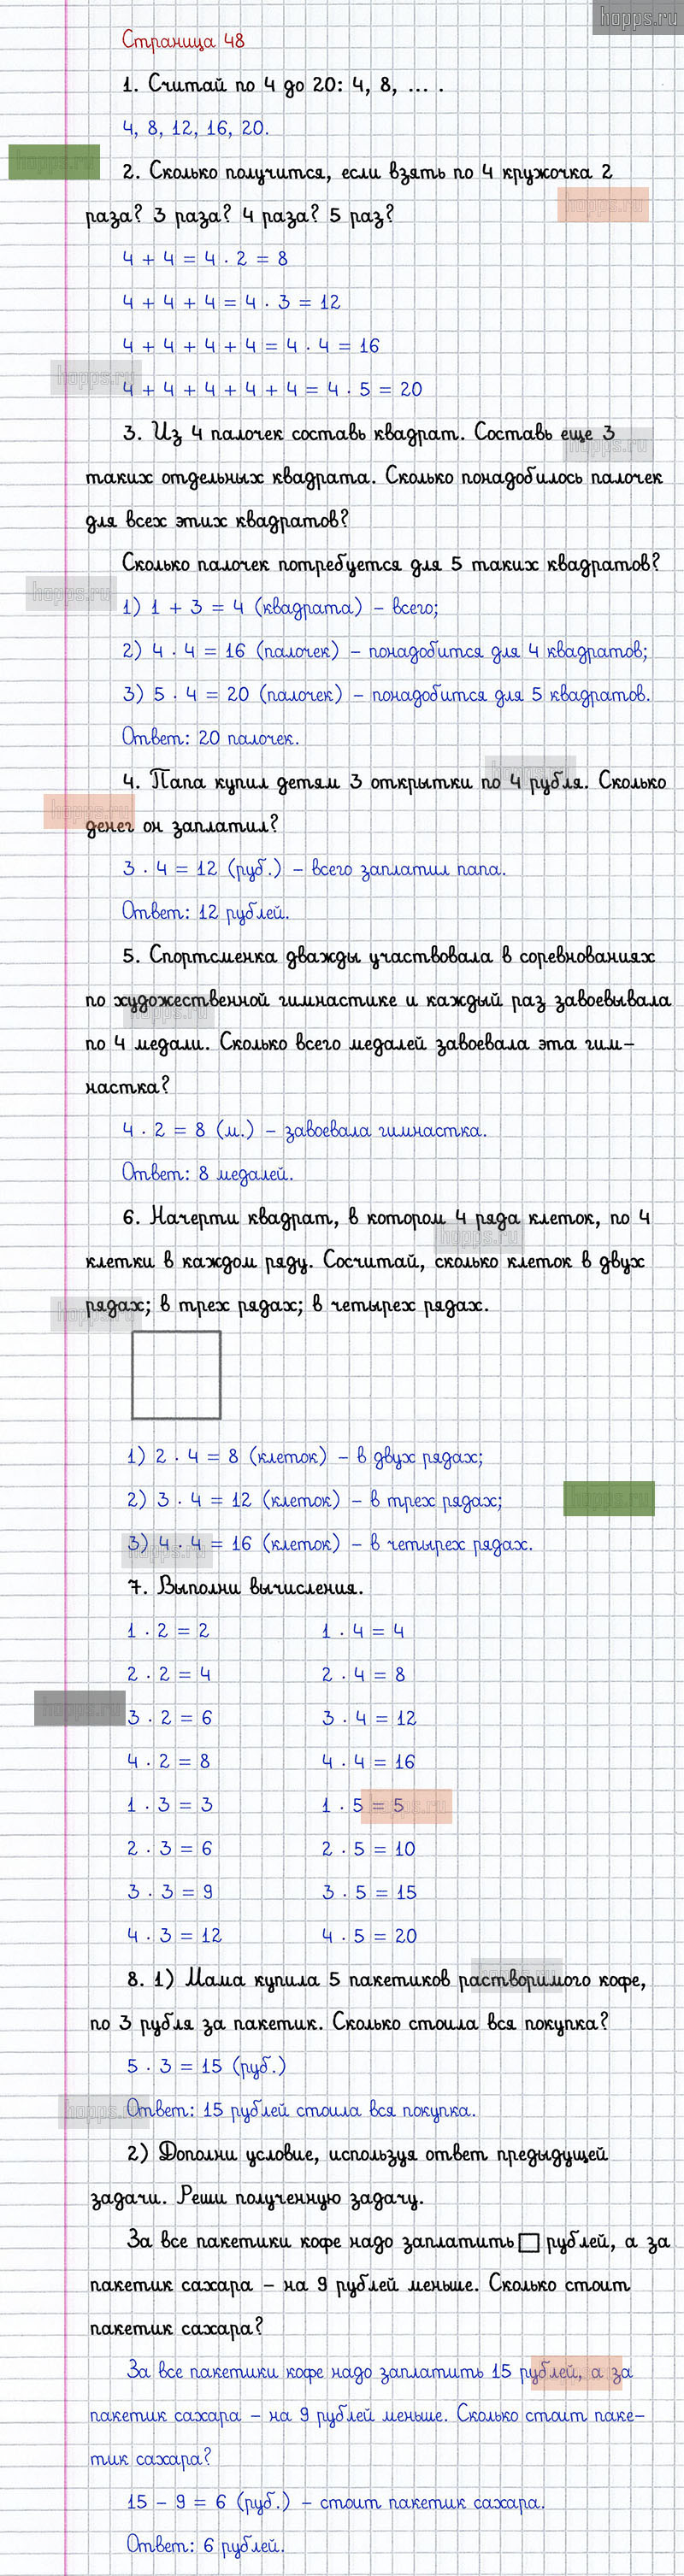 hopps.ru
Страница 48
1. Считай по 4 до 20: 4, 8, ... .
4, 8, 12, 16, 20.
hopps.ru
2. Сколько получится, если взять по 4 кружочка 2
hopps.ru
раза? 3 раза? 4 раза? 5 раз?
4 + 4 = 4 · 2 = 8
4 + 4 + 4 = 4 · 3 = 12
4 + 4 + 4 + 4 = 4 · 4 = 16
hopps.ru
4 + 4 + 4 + 4 + 4 = 4 · 5 = 20
3. Из 4 палочек составь квадрат. Составь еще 3
hopps.ru
таких отдельных квадрата. Сколько понадобилось палочек
для всех этих квадратов?
Сколько палочек потребуется для 5 таких квадратов?
hopps.ru
1) 1 + 3 = 4 (квадрата) – всего;
2) 4 · 4 = 16 (палочек) – понадобится для 4 квадратов;
3) 5 · 4 = 20 (палочек) – понадобится для 5 квадратов.
Ответ: 20 палочек.
hopps.ru
4. Папа купил детям 3 открытки по 4 рубля. Сколько
hopps.ru
денег он заплатил?
3 · 4 = 12 (руб.) – всего заплатил папа.
Ответ: 12 рублей.
5. Спортсменка дважды участвовала в соревнованиях
по художественной гимнастике и каждый раз завоевывала
hopps.ru
по 4 медали. Сколько всего медалей завоевала эта гим–
настка?
4 · 2 = 8 (м.) – завоевала гимнастка.
Ответ: 8 медалей.
6. Начерти квадрат, в котором 4 ряда клеток, по 4
hopps.ru
клетки в каждом ряду. Сосчитай, сколько клеток в двух
рядах; в трех рядах; в четырех рядах.
hopps.ru
1) 2 · 4 = 8 (клеток) – в двух рядах;
2) 3 · 4 = 12 (клеток) – в трех рядах;
hopps.ru
3) 4 · 4 = 16 (клеток) – в четырех рядах.
hopps.ru
7. Выполни вычисления.
1 · 2 = 2 1 · 4 = 4
2 · 2 = 4 2 · 4 = 8
hopps.ru
3 · 2 = 6 3 · 4 = 12
4 · 2 = 8 4 · 4 = 16
1 · 3 = 3 1 · 5 = 5
hopps.ru
2 · 3 = 6 2 · 5 = 10
3 · 3 = 9 3 · 5 = 15
4 · 3 = 12 4 · 5 = 20
hopps.ru
8. 1) Мама купила 5 пакетиков растворимого кофе,
по 3 рубля за пакетик. Сколько стоила вся покупка?
5 · 3 = 15 (руб.)
hopps.ru
Ответ: 15 рублей стоила вся покупка.
2) Дополни условие, используя ответ предыдущей
задачи. Реши полученную задачу.
За все пакетики кофе надо заплатить □ рублей, а за
пакетик сахара – на 9 рублей меньше. Сколько стоит
пакетик сахара?
За все пакетики кофе надо заплатить 15 рублей, а за
пакетик сахара – на 9 рублей меньше. Сколько стоит паке–
тик сахара?
15 – 9 = 6 (руб.) – стоит пакетик сахара.
Ответ: 6 рублей.